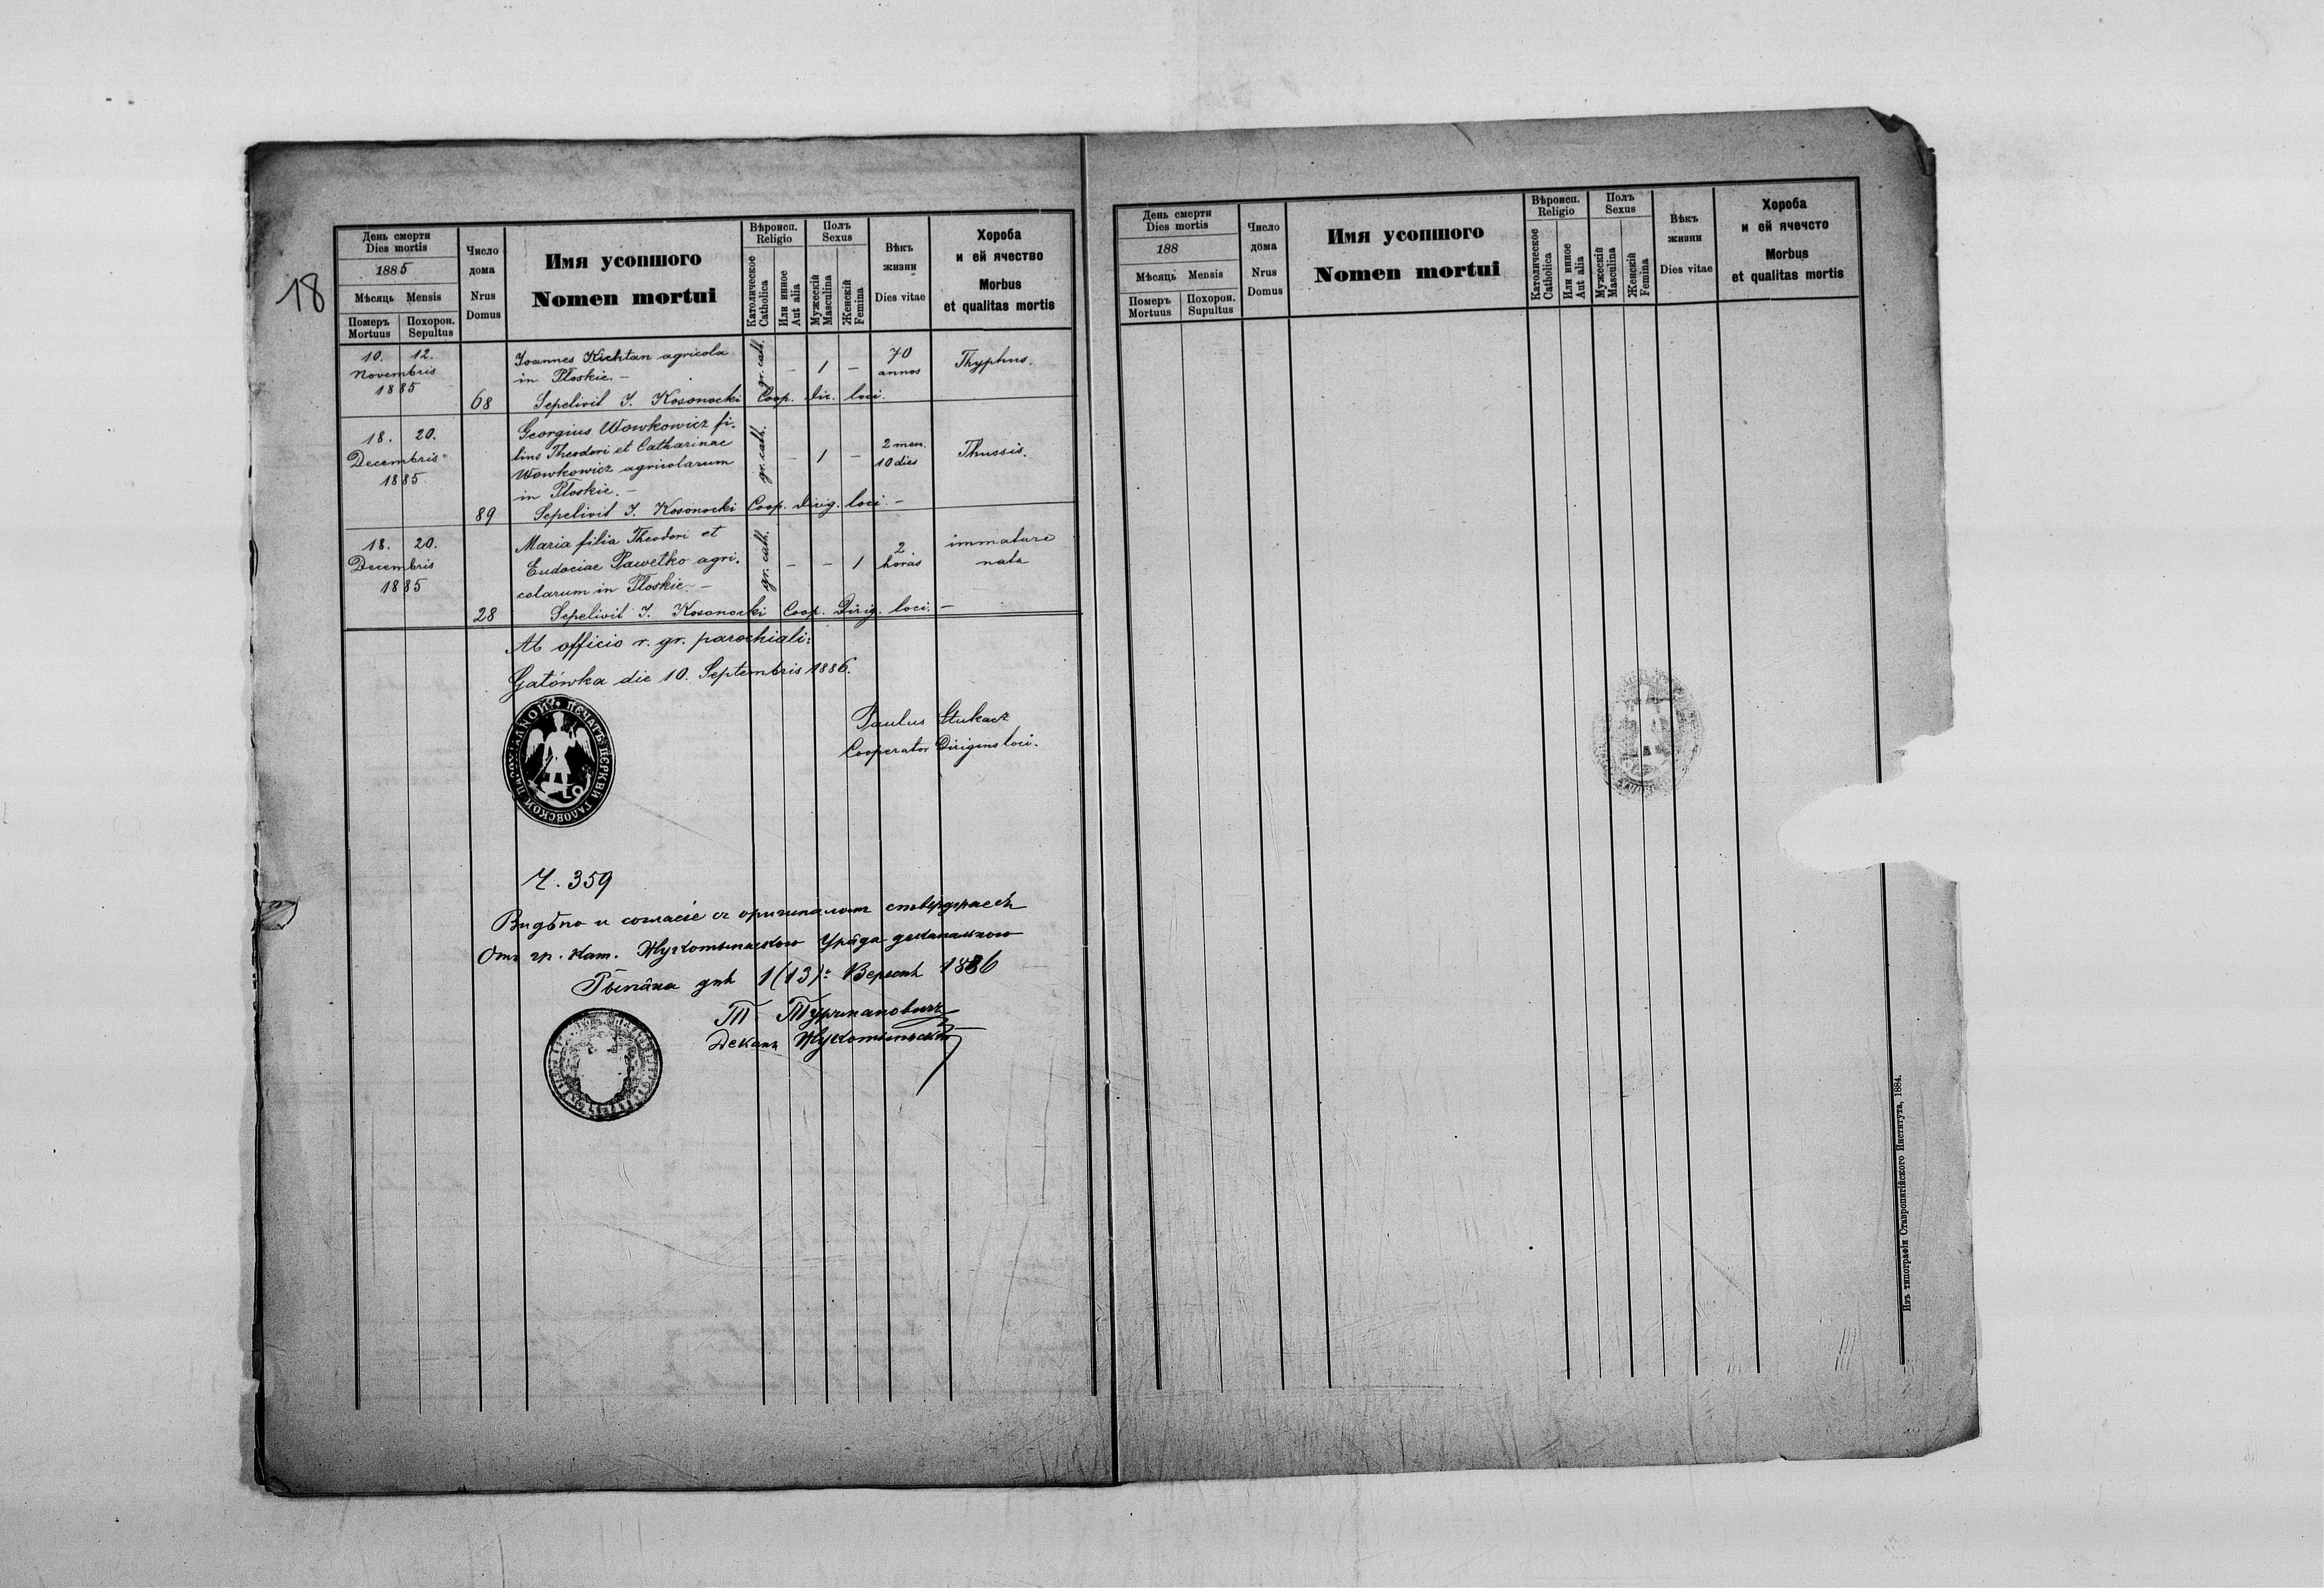 18
День смерти
Dies mortis
1885
Мѣсяць Mensis
Померъ Похорон.
Mortuus Sepultus
Число
дома
Nrus
Domus
Имя усопшого
Nomen mortui
Вѣроисп.
Religio
Католическое
Catholica
Или инное
Aut alia
Полъ
Sexus
Мужескій
Masculina
Женскій
Femina
Вѣкъ
жизни
Dies vitae
Хороба
и ей ячество
Morbus
et qualitas mortis
10. 12.
Novembris
1885
68
Joannes Kichtan agricola
in Płoskie. —
gr. cath.
— 1 —
70
annos
Thyphus.
Sepelivit J. Kosonocki Coop. dir. loci.
18. 20.
Decembris
1885
89
Georgius Wowkowicz fi-
lius Theodori et Catharinae
Wowkowicz agricolarum
in Płoskie. —
gr. cath.
— 1 —
2 men.
10 dies
Thussis.
Sepelivit J. Kosonocki Coop. dirig. loci. —
18. 20.
Decembris
1885
28
Maria filia Theodori et
Eudociae Pawełko agri-
colarum in Płoskie. —
gr. cath.
— — 1
2
horas
immature
nata
Sepelivit J. Kosonocki Coop. Dirig. loci. —
Ab officio r. gr. parochiali:
Gałówka die 10. Septembris 1886.
Paulus Stukacz
Cooperator Dirigens loci.
ПЕЧАТЬ ЦЕРКВИ ГАЛОВСКОЙ ПАРОХІАЛНОЙ
Ч. 359
Видѣно и согласіе съ оригиналомъ ствердраесѣ
Отъ гр. кат. Жукотыньского Уряда деканального
дня 1(13)го Вересня 1886
Т Турчмановичъ
Деканъ Жукотыньскій
День смерти
Dies mortis
188
Мѣсяць Mensis
Померъ Похорон.
Mortuus Supultus
Число
дома
Nrus
Domus
Имя усопшого
Nomen mortui
Вѣроисп.
Religio
Католическое
Catholica
Или инное
Aut alia
Полъ
Sexus
Мужескій
Masculina
Женскій
Femina
Вѣкъ
жизни
Dies vitae
Хороба
и ей ячечсто
Morbus
et qualitas mortis
Изъ типографіи Ставропигійского Института, 1884.